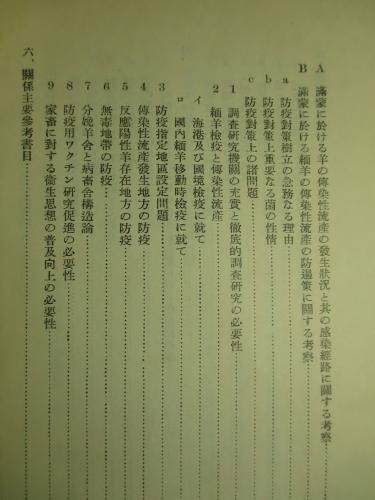 A 滿蒙に於ける羊の傳染性流產の發生狀況と其の感染經路に關する考察
B 滿蒙に於ける緬羊の傳染性流產の防遏策に關する考察
a 防疫對策樹立の急務なる理由
b 防疫對策上重要なる菌の性情
c 防疫對策上の諸問題
1 調査硏究機關の充實と徹底的調査硏究の必要性
2 緬羊檢疫と傳染性流產
イ 海港及び國境檢疫に就て
ロ 國內緬羊移動時檢疫に就て
3 防疫指定地區設定問題
4 傳染性流產發生地方の防疫
5 反應陽性羊存在地方の防疫
6 無毒地帶の防疫
7 分娩羊舍と病畜舍構造論
8 防疫用ワクチン硏究促進の必要性
9 家畜に對する衞生思想の普及向上の必要性
六、關係主要參考書目